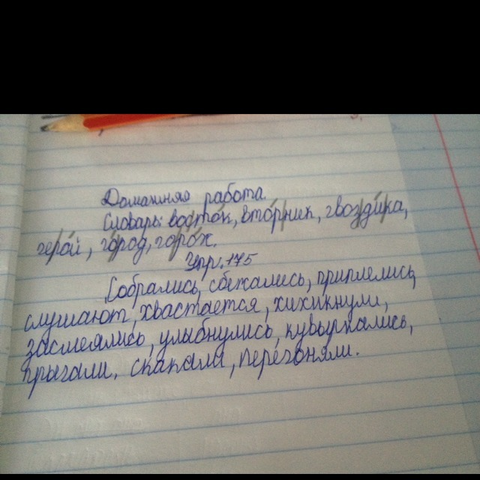 Домашняя работа.
Словарь: восто́к, вто́рник, гвозди́ка,
геро́й, го́род, горо́х.
Упр. 175
Собрались, сбежались, приплелись,
слушают, хвастается, хихикнули,
засмеялись, улыбнулись, кувыркались,
прыгали, скакали, перегоняли.